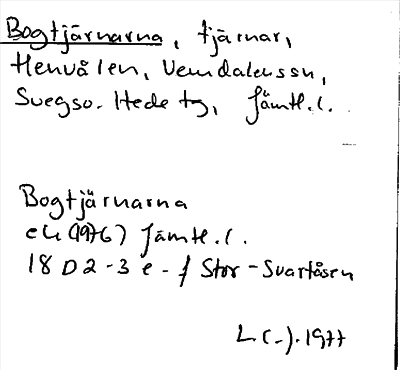 Bogtjärnarna, tjärnar,
Henvålen, Vemdalens sn,
Svegs o. Hede tg, Jämtl. l.
Bogtjärnarna
ek (1976) Jämtl. l.
18 D 2-3 e-f Stor-Svartåsen
L(-). 1977